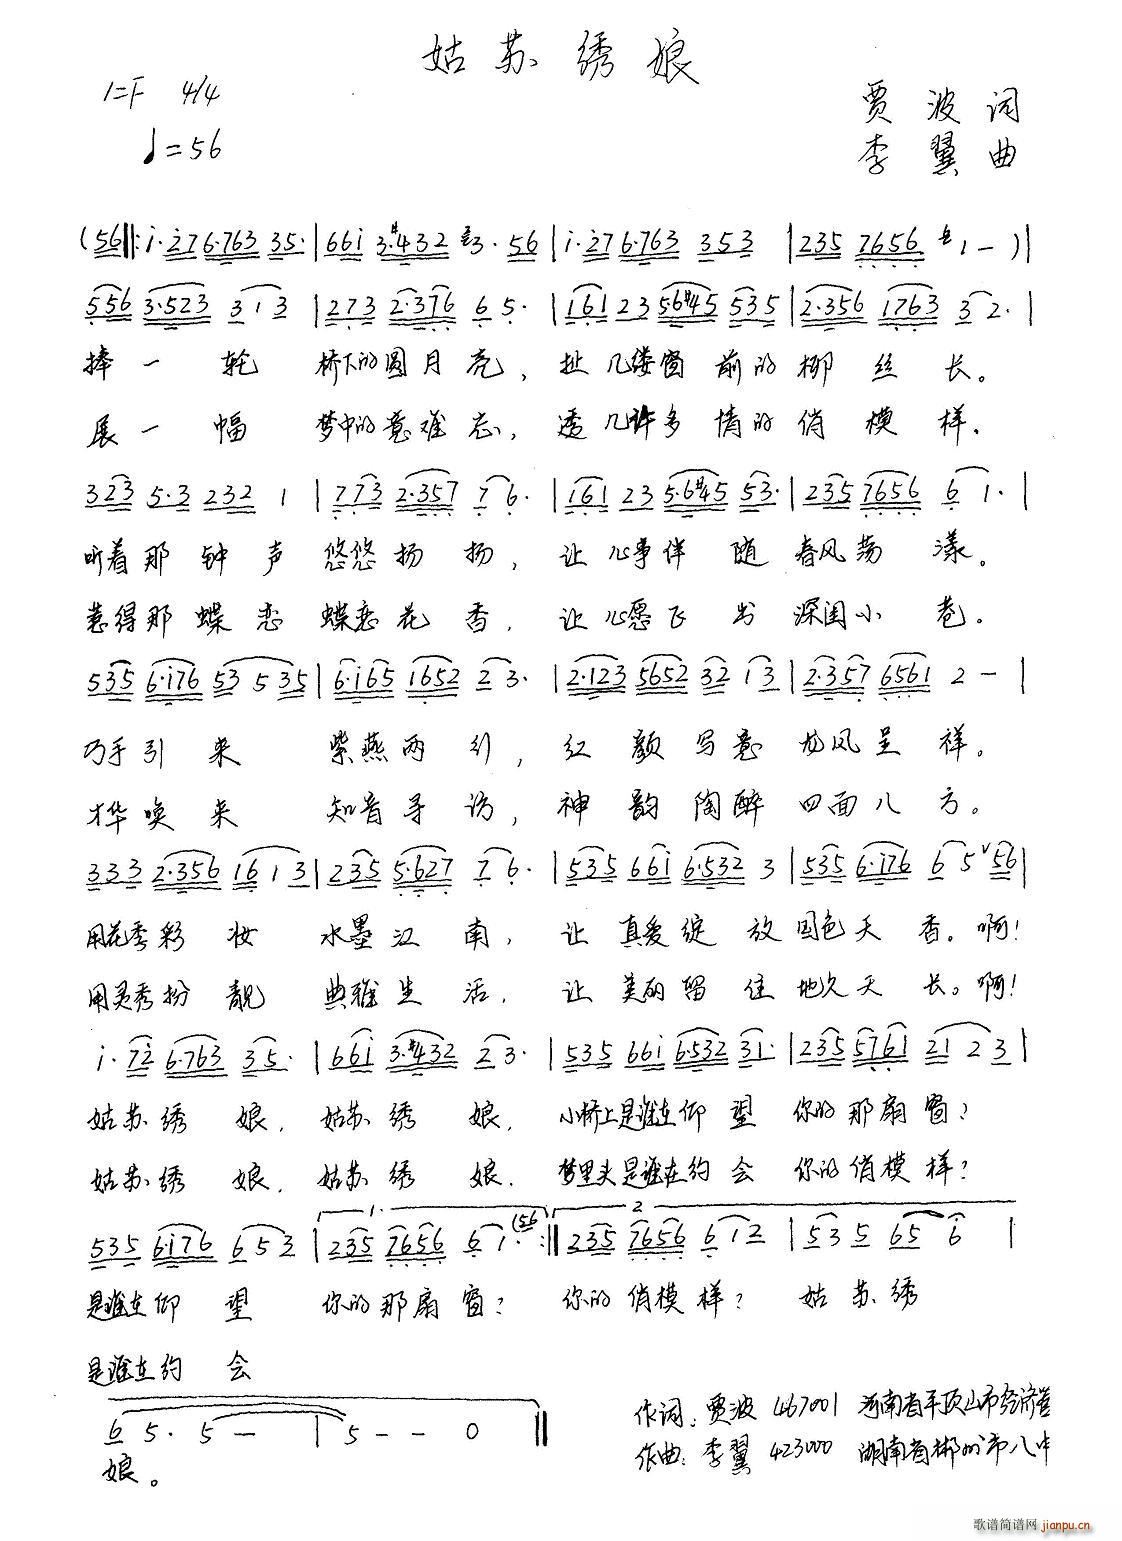 姑苏绣娘
1=F 4/4
♩=56
贾波词
李翼曲
(56‖: i·276·763 35· | 661 3·#432 3· 56 | i·276·763 353 | 235 7656 1 - ) |
556 3·523 313 | 273 2·376 65· | 161 23 56#45 535 | 2·356 1763 32· |
捧一轮 桥下的圆月亮, 扯几缕窗前的柳丝长。
展一幅 梦中的意难忘, 透几许多情的俏模样。
323 5·3 232 1 | 773 2·357 76· | 161 23 5·6#45 53· | 235 7656 61· |
听着那钟声悠悠扬扬, 让心事伴随春风荡漾。
惹得那蝶恋蝶恋花香, 让心愿飞出深闺小巷。
535 6·i76 53 535 | 6·i65 1652 23· | 2·123 5652 32 13 | 2·357 6561 2 - |
巧手引来 紫燕两行, 红颜写意龙凤呈祥。
才华唤来 知音寻访, 神韵陶醉四面八方。
333 2·356 16 13 | 235 5·627 76· | 535 66i 6·532 3 | 535 6·i76 65ˇ56 |
用花季彩妆 水墨江南, 让真爱绽放国色天香。啊!
用灵秀扮靓 典雅生活, 让美丽留住地久天长。啊!
i·7i 6·763 35· | 66i 3·#432 23· | 535 66i 6·532 31· | 235 5761 21 23 |
姑苏绣娘, 姑苏绣娘, 小桥上是谁在仰望你的那扇窗?
姑苏绣娘, 姑苏绣娘, 梦里头是谁在约会你的俏模样?
535 6i76 653 | 1. 235 7656 61· (56 :‖ 2. 235 7656 612 | 535 65 6 |
是谁在仰望 你的那扇窗? 你的俏模样? 姑苏绣
是谁在约会
65· 5 - | 5 - - 0 ‖
娘。
作词:贾波 467001 河南省平顶山市经济
作曲:李翼 423000 湖南省郴州市八中
歌谱简谱网 jianpu.cn